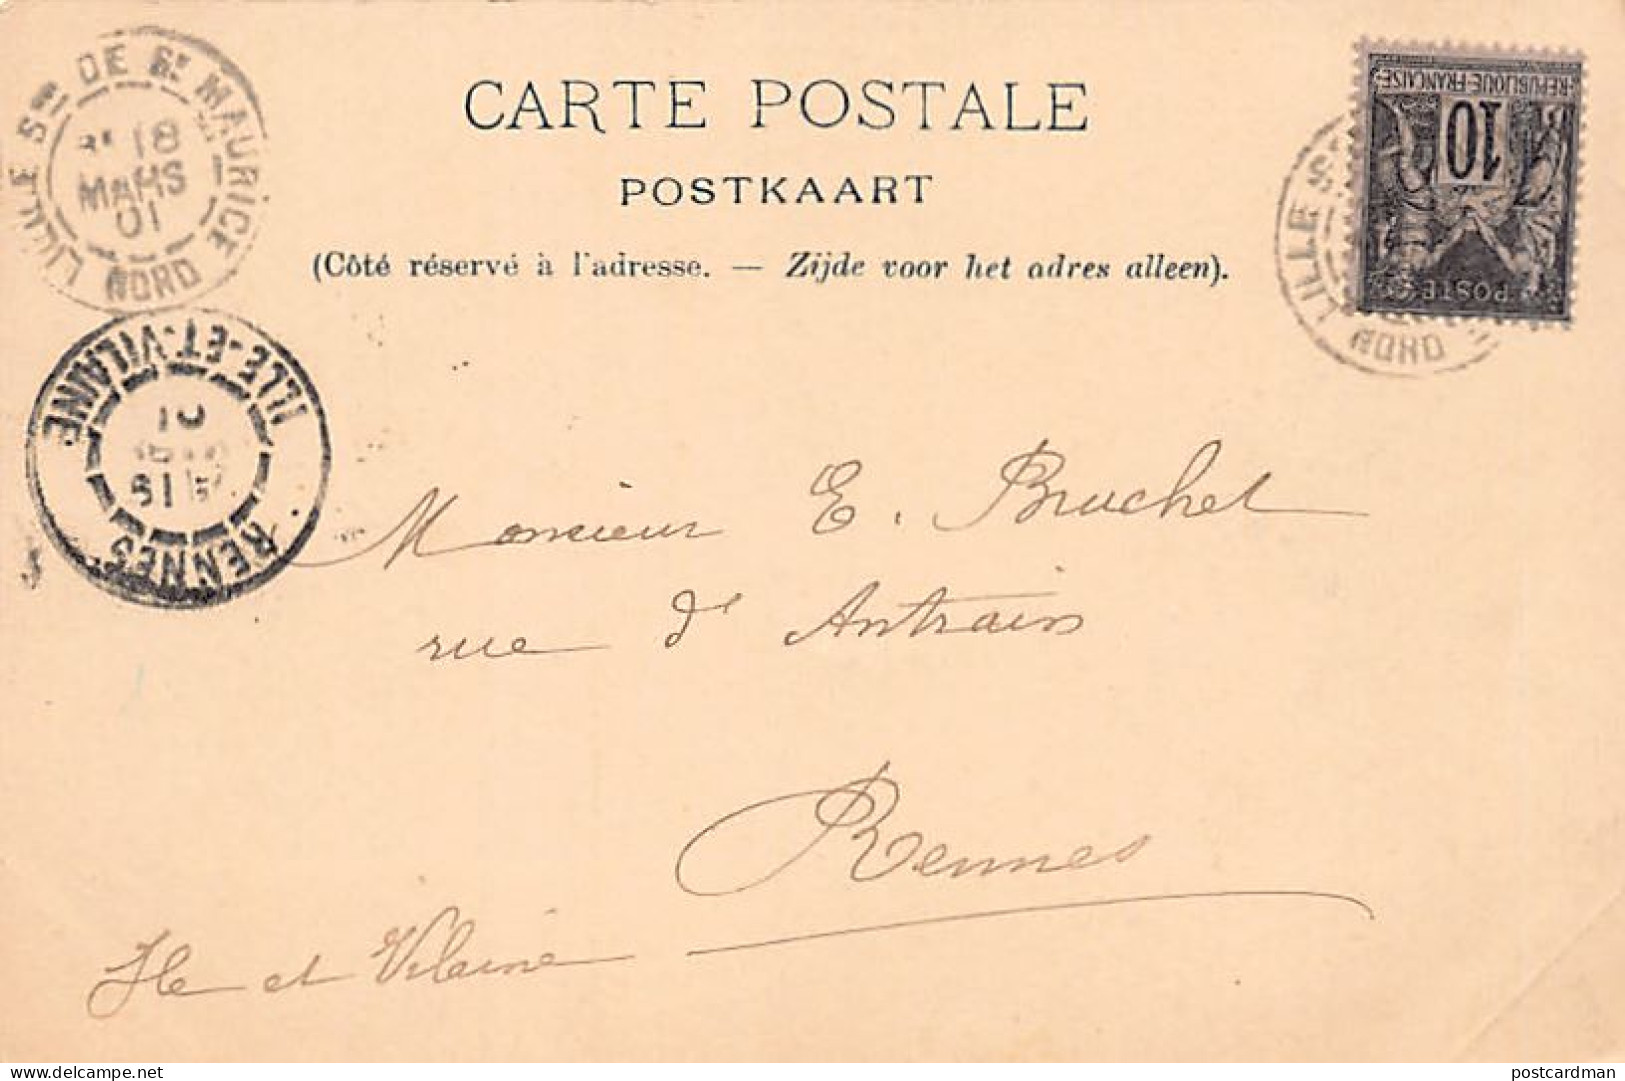 LILLE Son DE St MAURICE
18
MARS
01
NORD
CARTE POSTALE
POSTKAART
(Côté réservé à l'adresse. — Zijde voor het adres alleen).
REPUBLIQUE·FRANÇAISE
10
POSTE
LILLE
NORD
RENNES
ILLE-ET-VILAINE
01
Monsieur E. Bruchet
rue d'Antrain
Rennes
Ille et Vilaine
postcardman